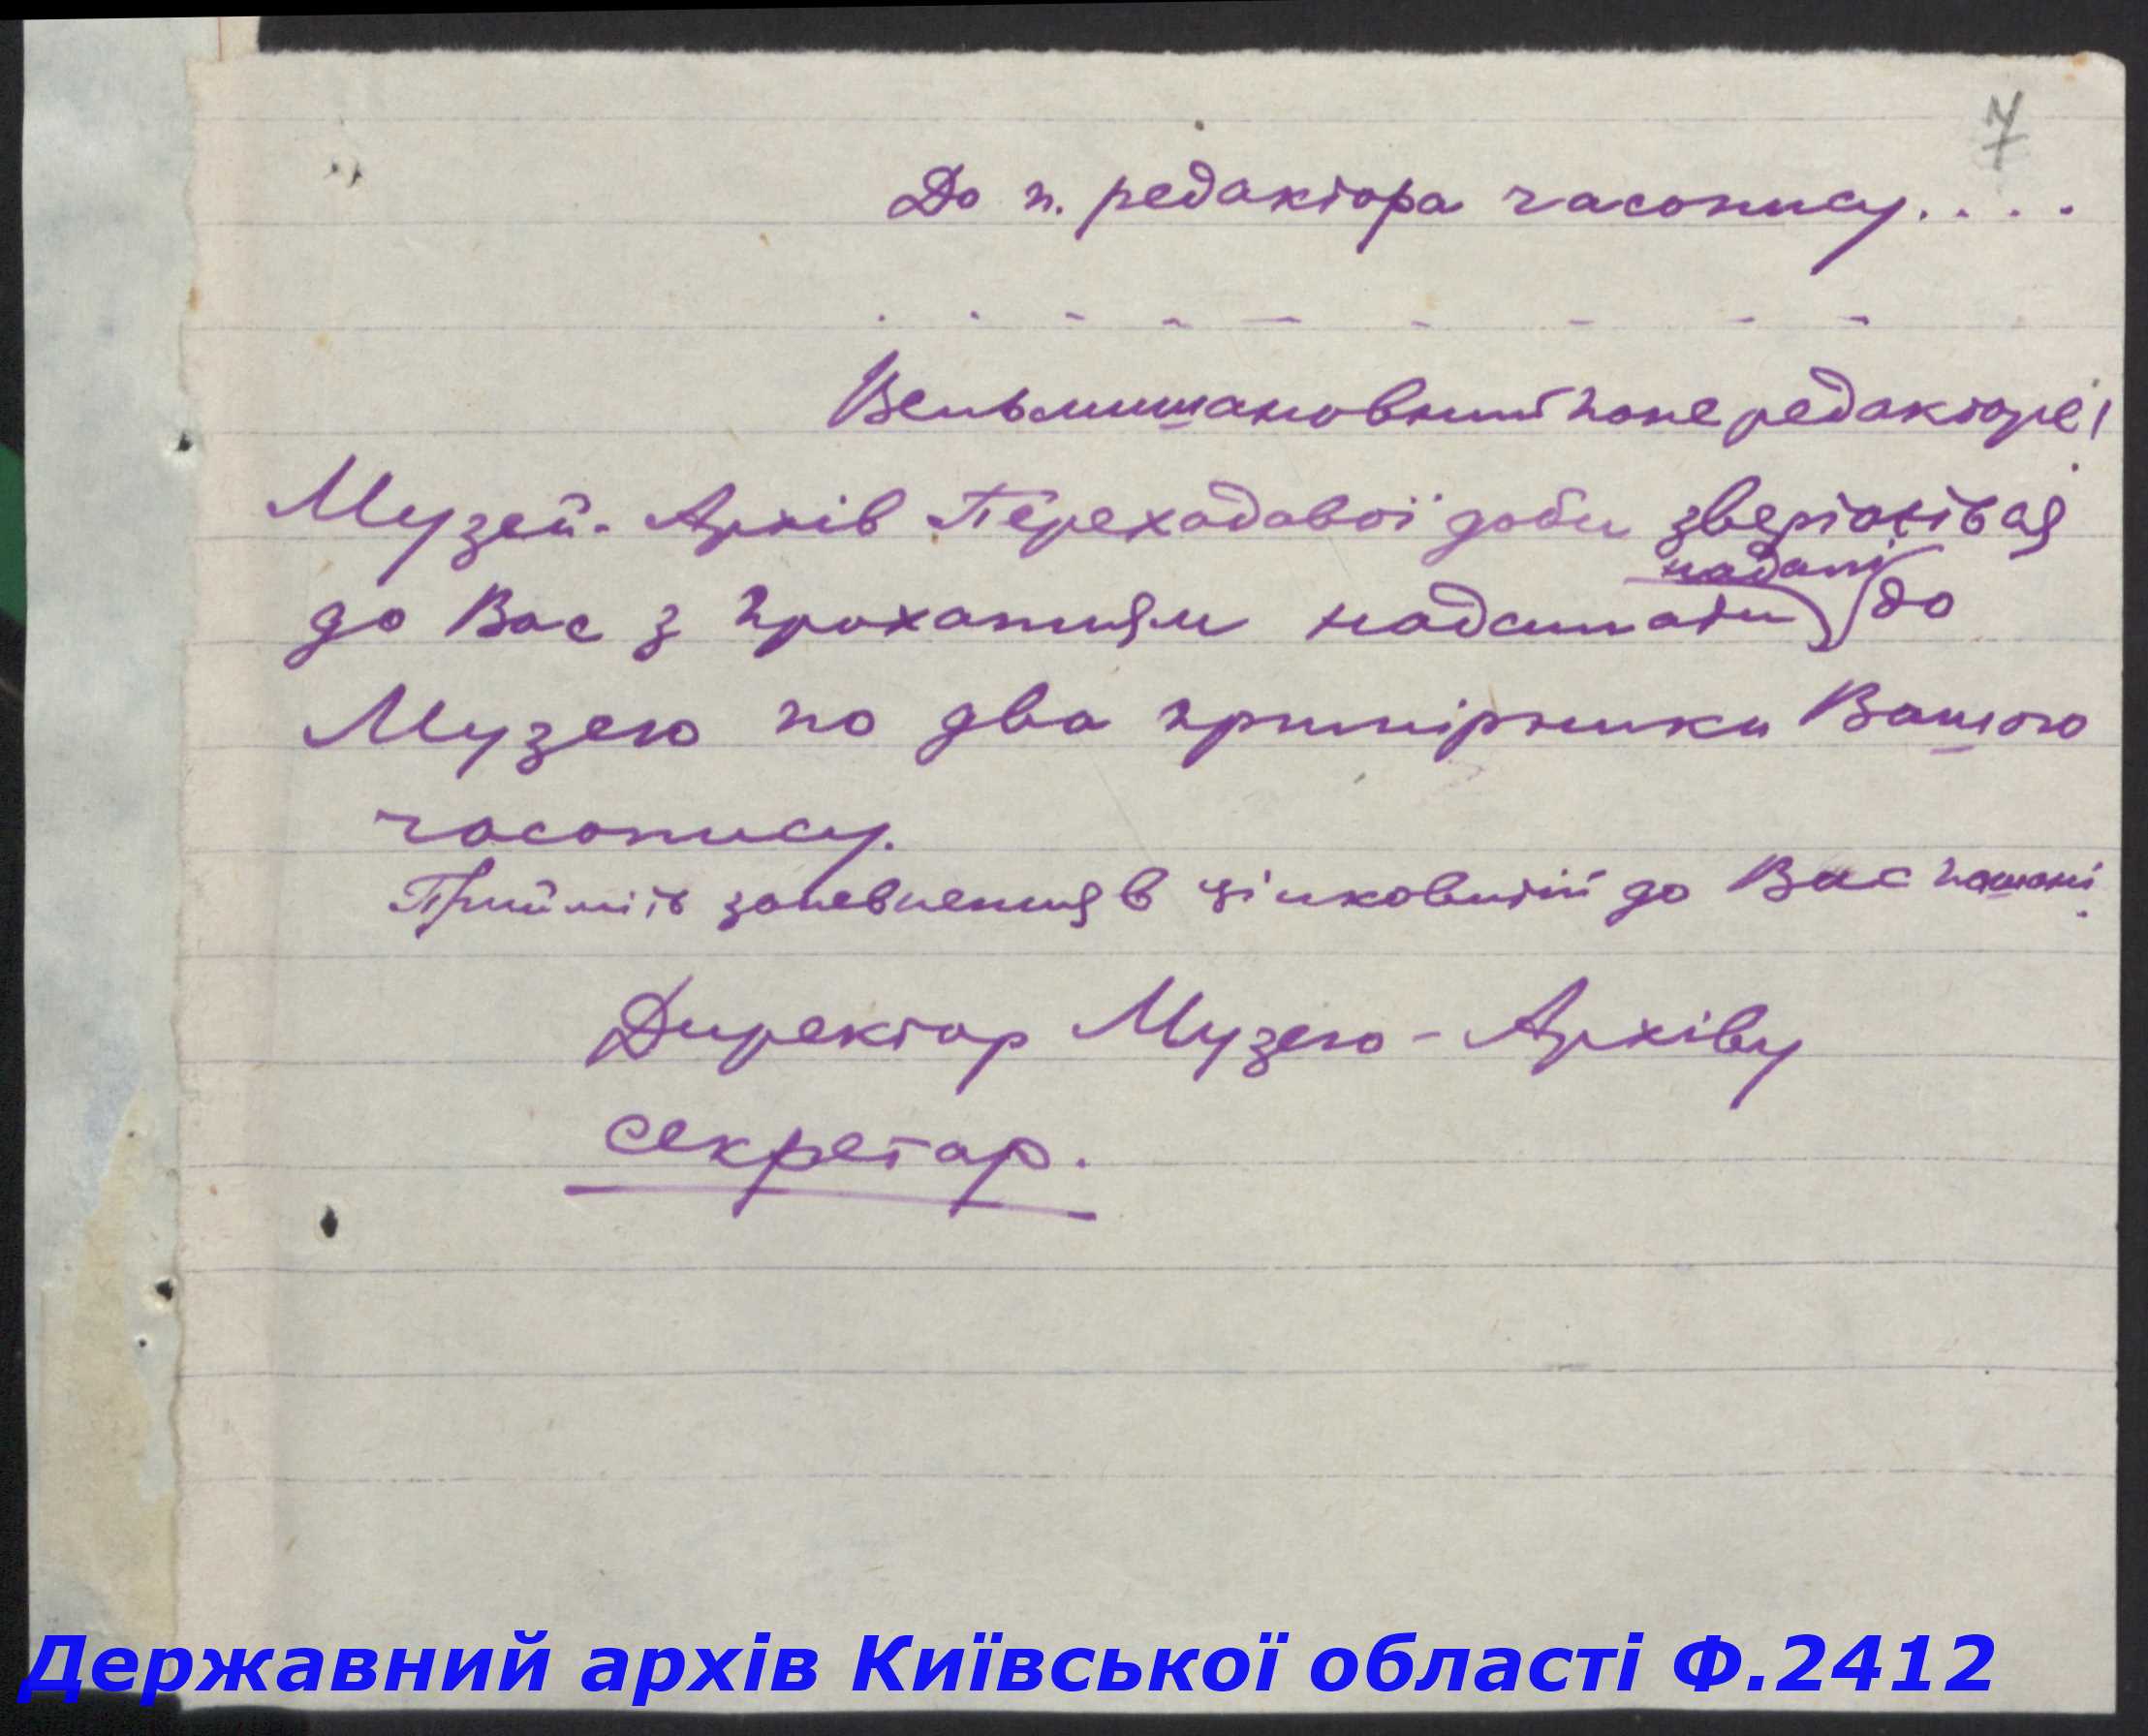 7
До п. редактора часопису. . . .
. . - - - - - - -
Вельмишановний пане редакторе!
Музей-Архів Переходової доби звертається
надалі
до Вас з проханням надсилати до
Музею по два примірники Вашого
часопису.
Прийміть запевнення в цілковитій до Вас пошані.
Директор Музею-Архіву
Секретар.
Державний архів Київської області Ф.2412